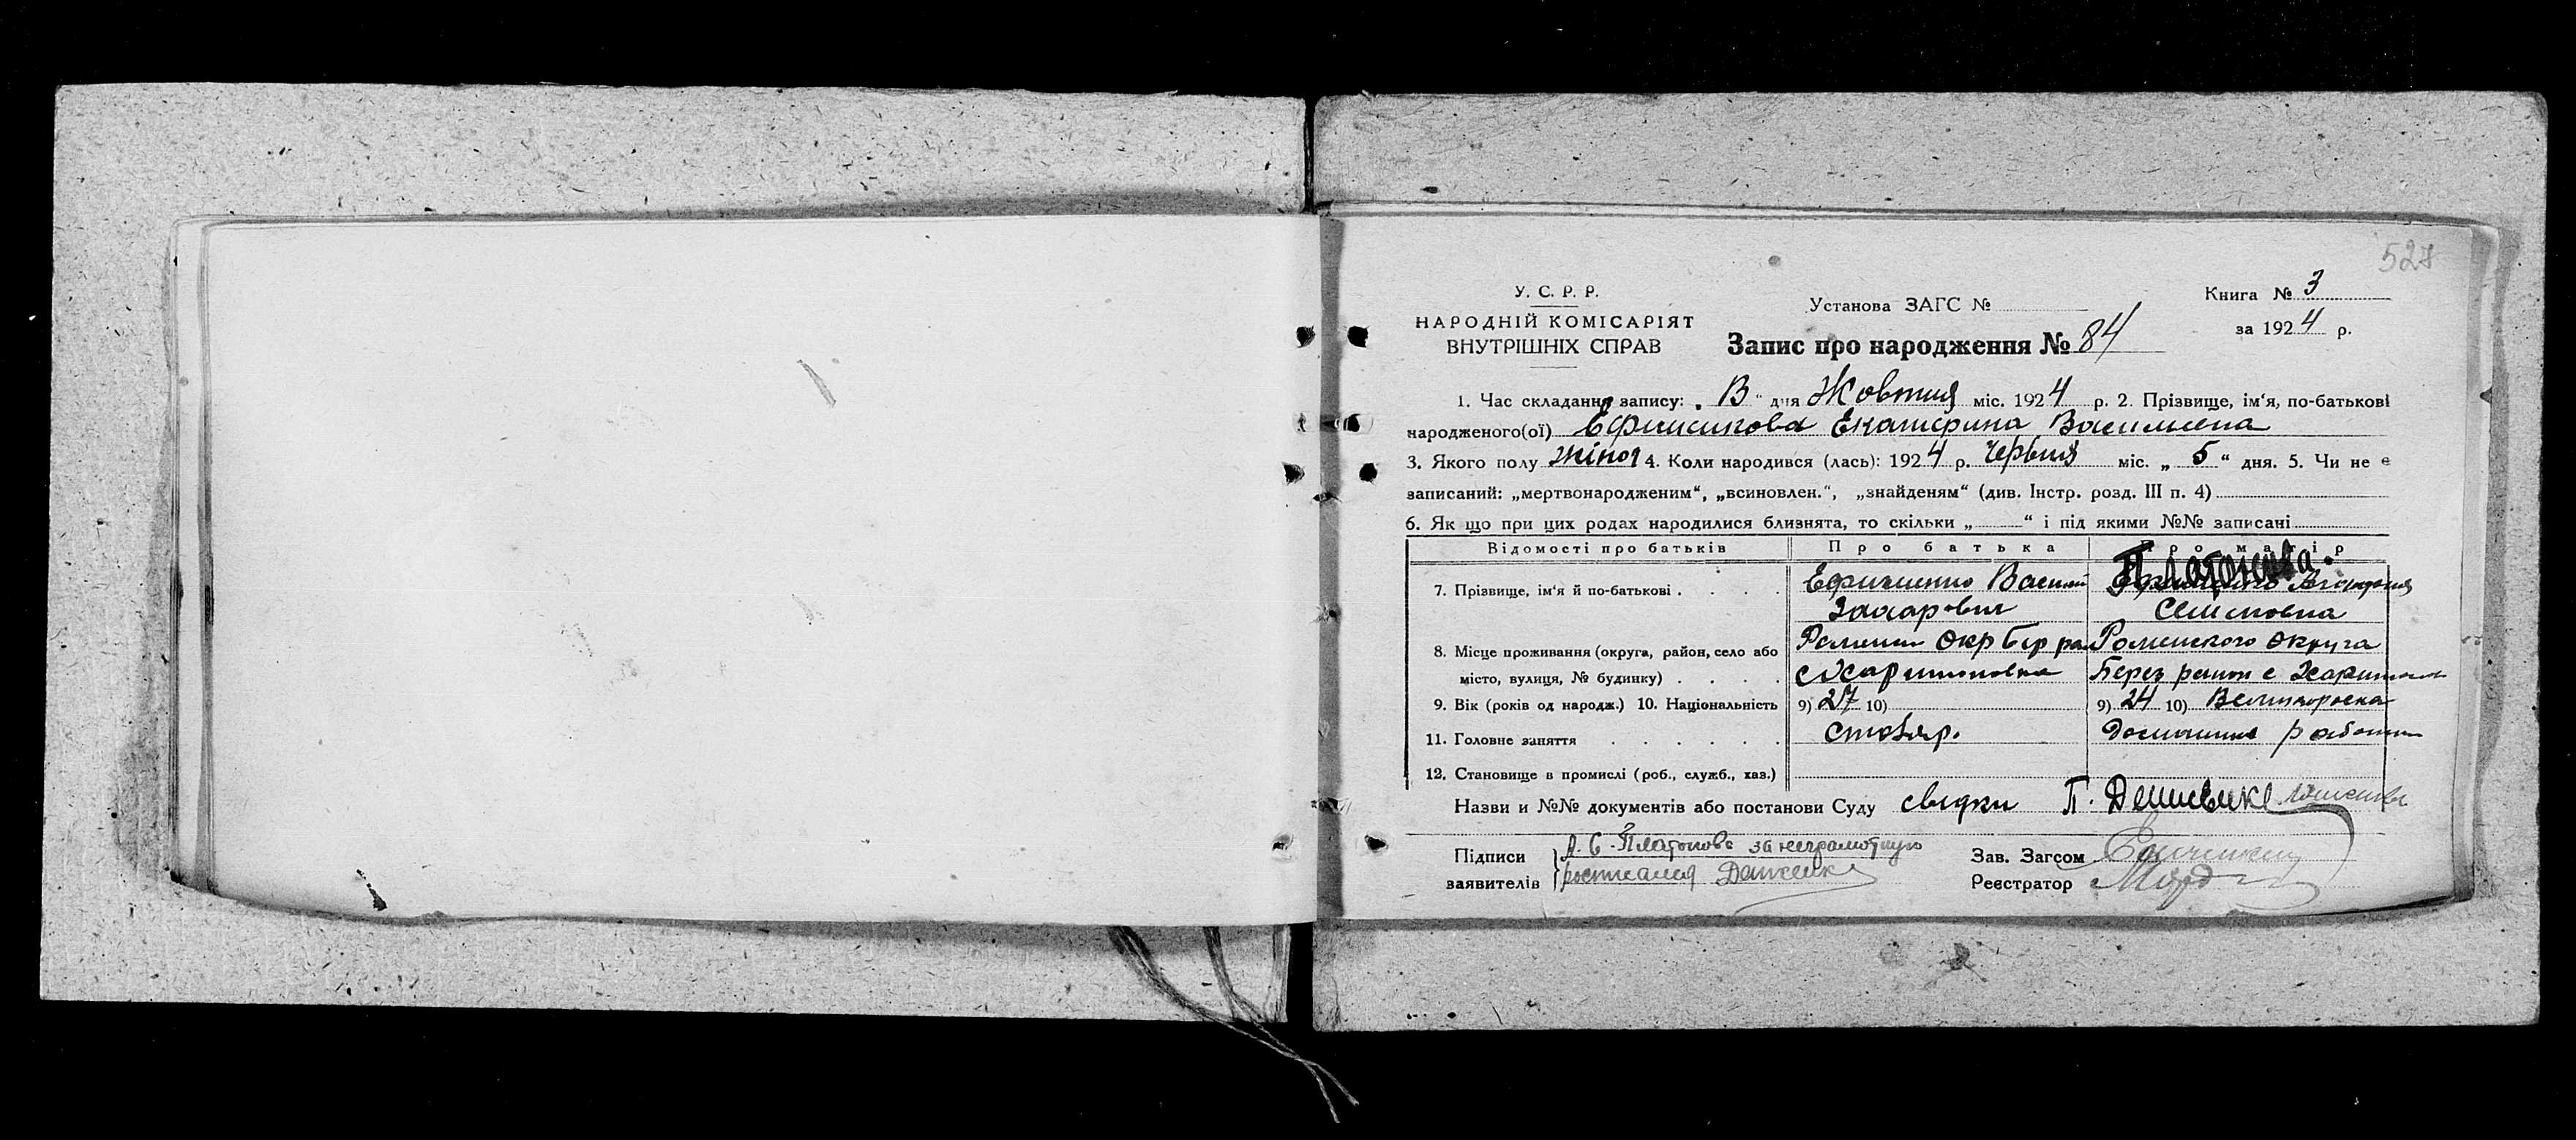 527
У. С. Р. Р.
НАРОДНІЙ КОМІСАРІЯТ
ВНУТРІШНІХ СПРАВ
Установа ЗАГС №
Книга № 3
за 1924 р.
Запис про народження № 84
1. Час складання запису: „ В “ дня Жовтня міс. 1924 р. 2. Прізвище, ім‘я, по-батькові
народженого(ої) Екатерина
3. Якого полу жіноч 4. Коли народився (лась): 1924 р. Червня міс. „ 5 “ дня. 5. Чи не е
записаний: „мертвонародженим“, „всиновлен.“, „знайденям“ (див. Інстр. розд. III п. 4)
6. Як що при цих родах народилися близнята, то скільки „ “ і під якими №№ записані
Відомості про батьків Про батька Про матір
Платонова.
7. Прізвище, ім‘я й по-батькові . . . . Василий
Захарович
8. Місце проживання (округа, район, село або Роменского Округа
місто, вулиця, № будинку) . . . . Берез район с
9. Вік (років од народж.) 10. Національність 9) 27 10) 9) 24 10) Великороска
11. Головне заняття . . . . . . столяр.
12. Становище в промислі (роб., служб., хаз.)
Назви и №№ документів або постанови Суду свидки П.
Підписи А. С. Платонова за неграмотную
заявителів
Зав. Загсом
Реєстратор